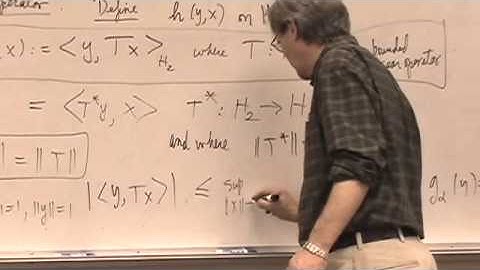 operator. Define h(y,x) on H
x) := <y, Tx>_{H_2} where T: bounded
operator
= <T*y, x> T*: H_2 → H
and where ||T*|| =
| = ||T||
|<y, Tx>| ≤ sup g_α(y) =
=1, ||y||=1 ||x||